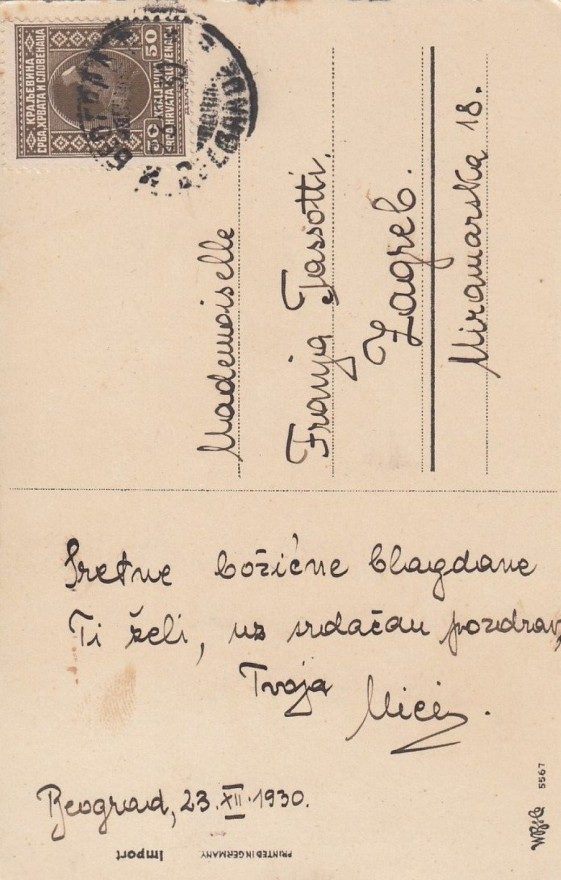 КРАЉЕВИНА
СРБА, ХРВАТА И СЛОВЕНАЦА
50
50
BEOGRAD
Mademoiselle
Franja Tassotti,
Zagreb.
Miramarska 18.
Sretne božićne blagdane
Ti želi, uz srdačan pozdrav,
Tvoja
Mici.
Beograd, 23. XII. 1930.
Import
PRINTED IN GERMANY
5567